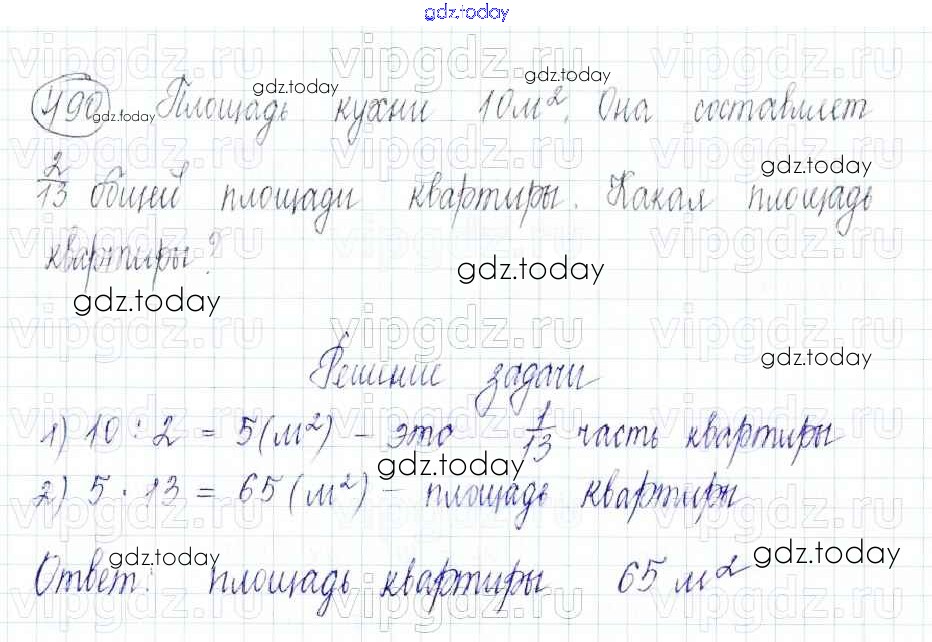 gdz.today
490 Площадь кухни 10 м². Она составляет
2/13 общей площади квартиры. Какая площадь
квартиры?
Решение задачи
1) 10 : 2 = 5 (м²) – это 1/13 часть квартиры
2) 5 · 13 = 65 (м²) – площадь квартиры
Ответ: площадь квартиры 65 м²